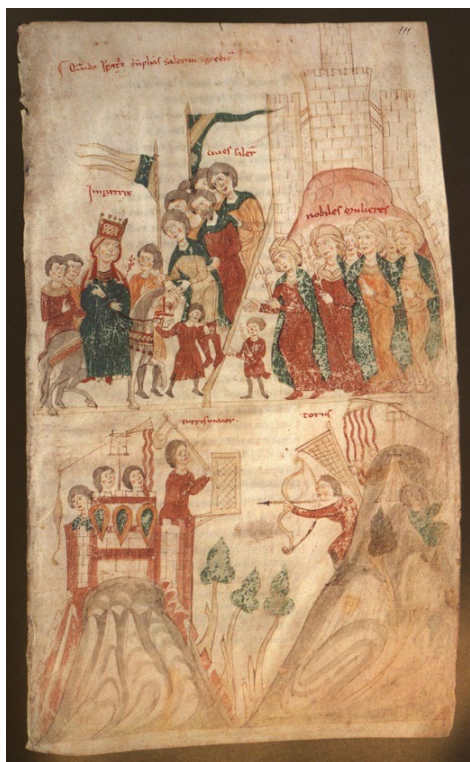 111
Quando Ipatrix triūphās salernū īgreditᷣ
Impatrix
cives saler̄
nobiles mulieres
turris maior
toris